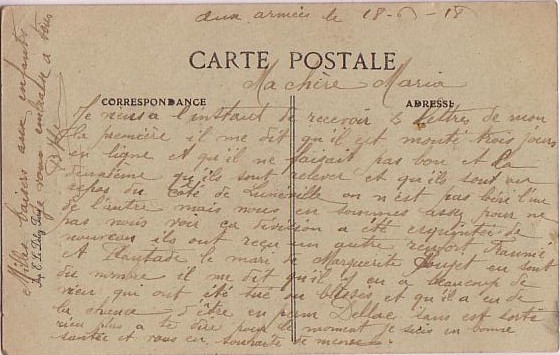 aux armées le 18-6-18
CARTE POSTALE
Ma chère Maria
CORRESPONDANCE
ADRESSE
Je viens a l'instant de recevoir 2 lettres de mon
la première il me dit qu'il est monté trois jours
en ligne et qu'il ne faisait pas bon et la
deuxième qu'ils sont relever et qu'ils sont au
repos du côté de Lunéville on n'est pas bien l'un
de l'autre mais nous en sommes assez pour ne
pas nous voir sa division a été ereintée de
nouveau ils ont reçu un autre renfort
A Plantade le mari de Marguerite en sont
du nombre il me dit qu'il y en a beaucoup de
vieux qui ont été tué ou blessés et qu'il a eu de
la chance d'être en perm sans est sorti
rien plus a te dire pour le moment Je suis en bonne
santée et vous en souhaite de meme
Milles baisers aux enfants
je vous embrasse a tous
Imp. E. Le Deley, Paris